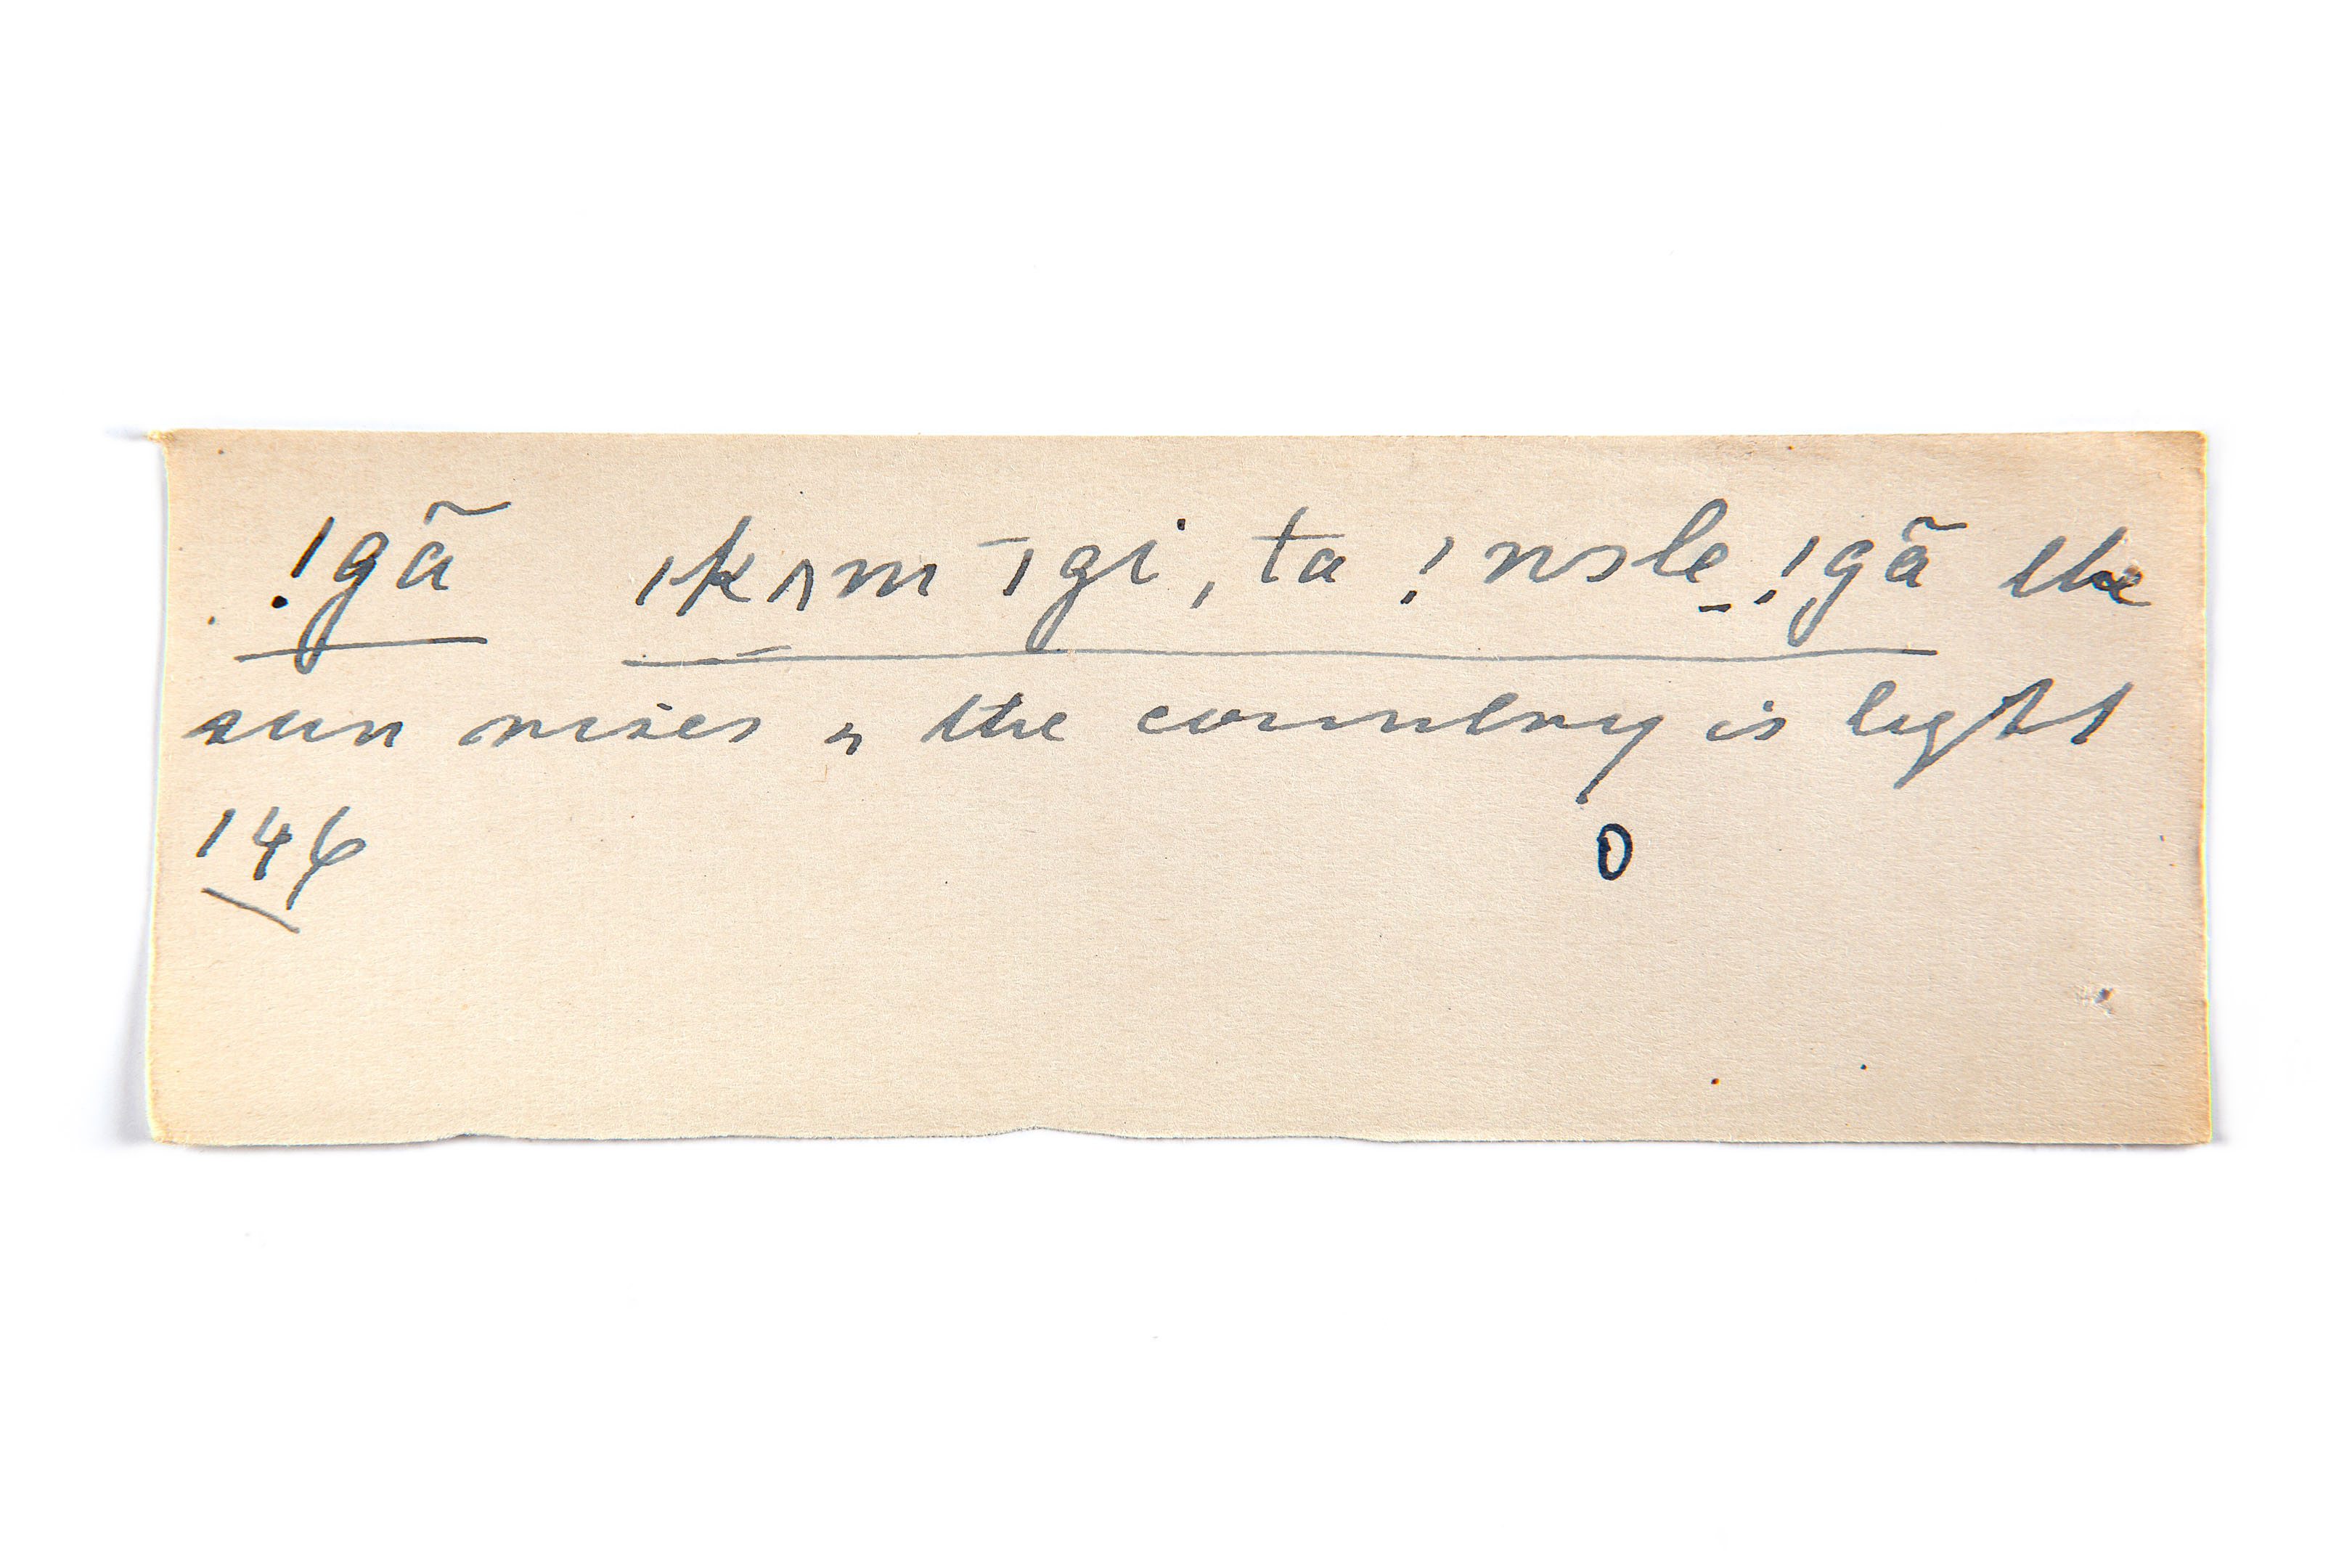 !gã ıkʌm ꟷıgi, ta !nsle_!gã the
sun rises & the country is light
146
0